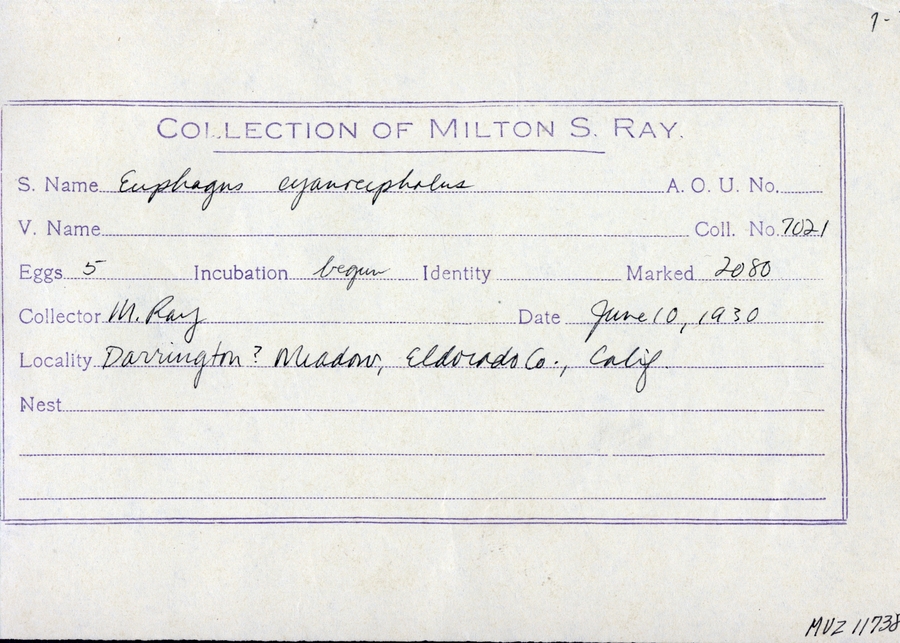 7-
COLLECTION OF MILTON S. RAY.
S. Name Euphagus cyanocephalus A. O. U. No.
V. Name Coll. No. 7021
Eggs 5 Incubation begun Identity Marked 2080
Collector M. Ray Date June 10, 1930
Locality Darrington? Meadow, Eldorado Co., Calif.
Nest
MVZ 11738